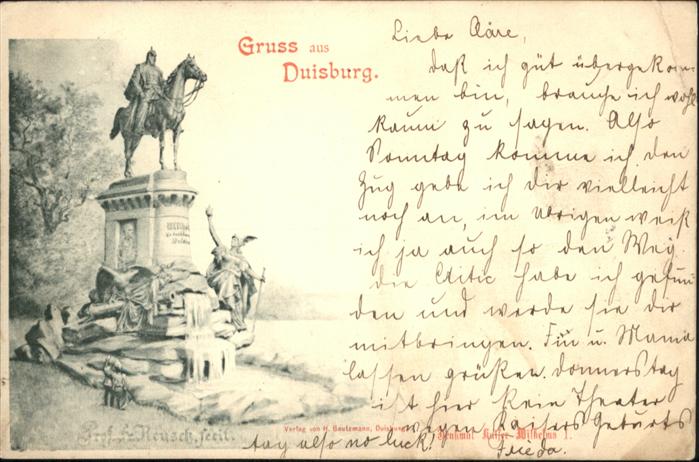 Gruss aus
Duisburg.
Liebe Kläre,
daß ich gut übergekom-
men bin, brauche ich wohl
kaum zu sagen. Also
Sonntag komme ich, den
Zug gebe ich dir vielleicht
noch an, im übrigen weiß
ich ja auch so den Weg.
die habe ich gefun
den und werde sie dir
mitbringen. u. Mama
lassen grüßen. donnerstag
ist hier kein Theater
wegen Kaisers Geburts
tag also no luck!
Frieda.
Wilhelm
Prof. Reusch, fecit.
Verlag von H. Beutemann, Duisburg.
Denkmal Kaiser Wilhelms I.